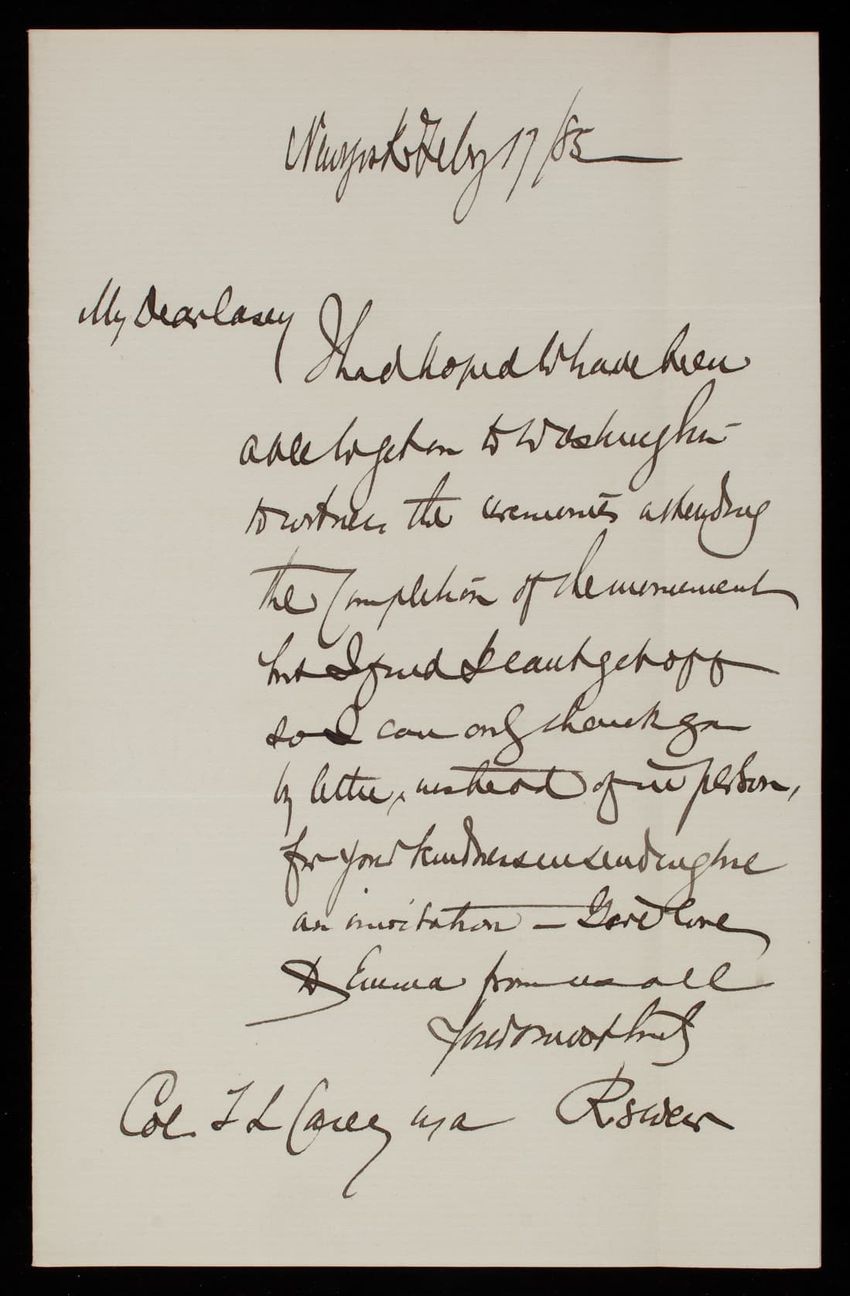 New York Feby 17/85
My Dear Casey
I had hoped to have been
able to get on to Washington
to witness the ceremonies attending
the completion of the monument
but I find I cant get off
so I can only thank you
by letter, instead of in person,
for your kindness in sending me
an invitation — Give love
to Emma from us all
Yours most truly
R S Weir
Col T L Casey USA